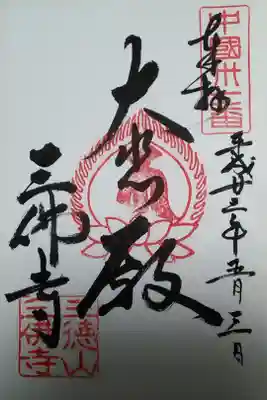 中國卅一番
奉拝
平成廿二年五月三日
大悲殿
三佛寺
三徳山
三佛寺